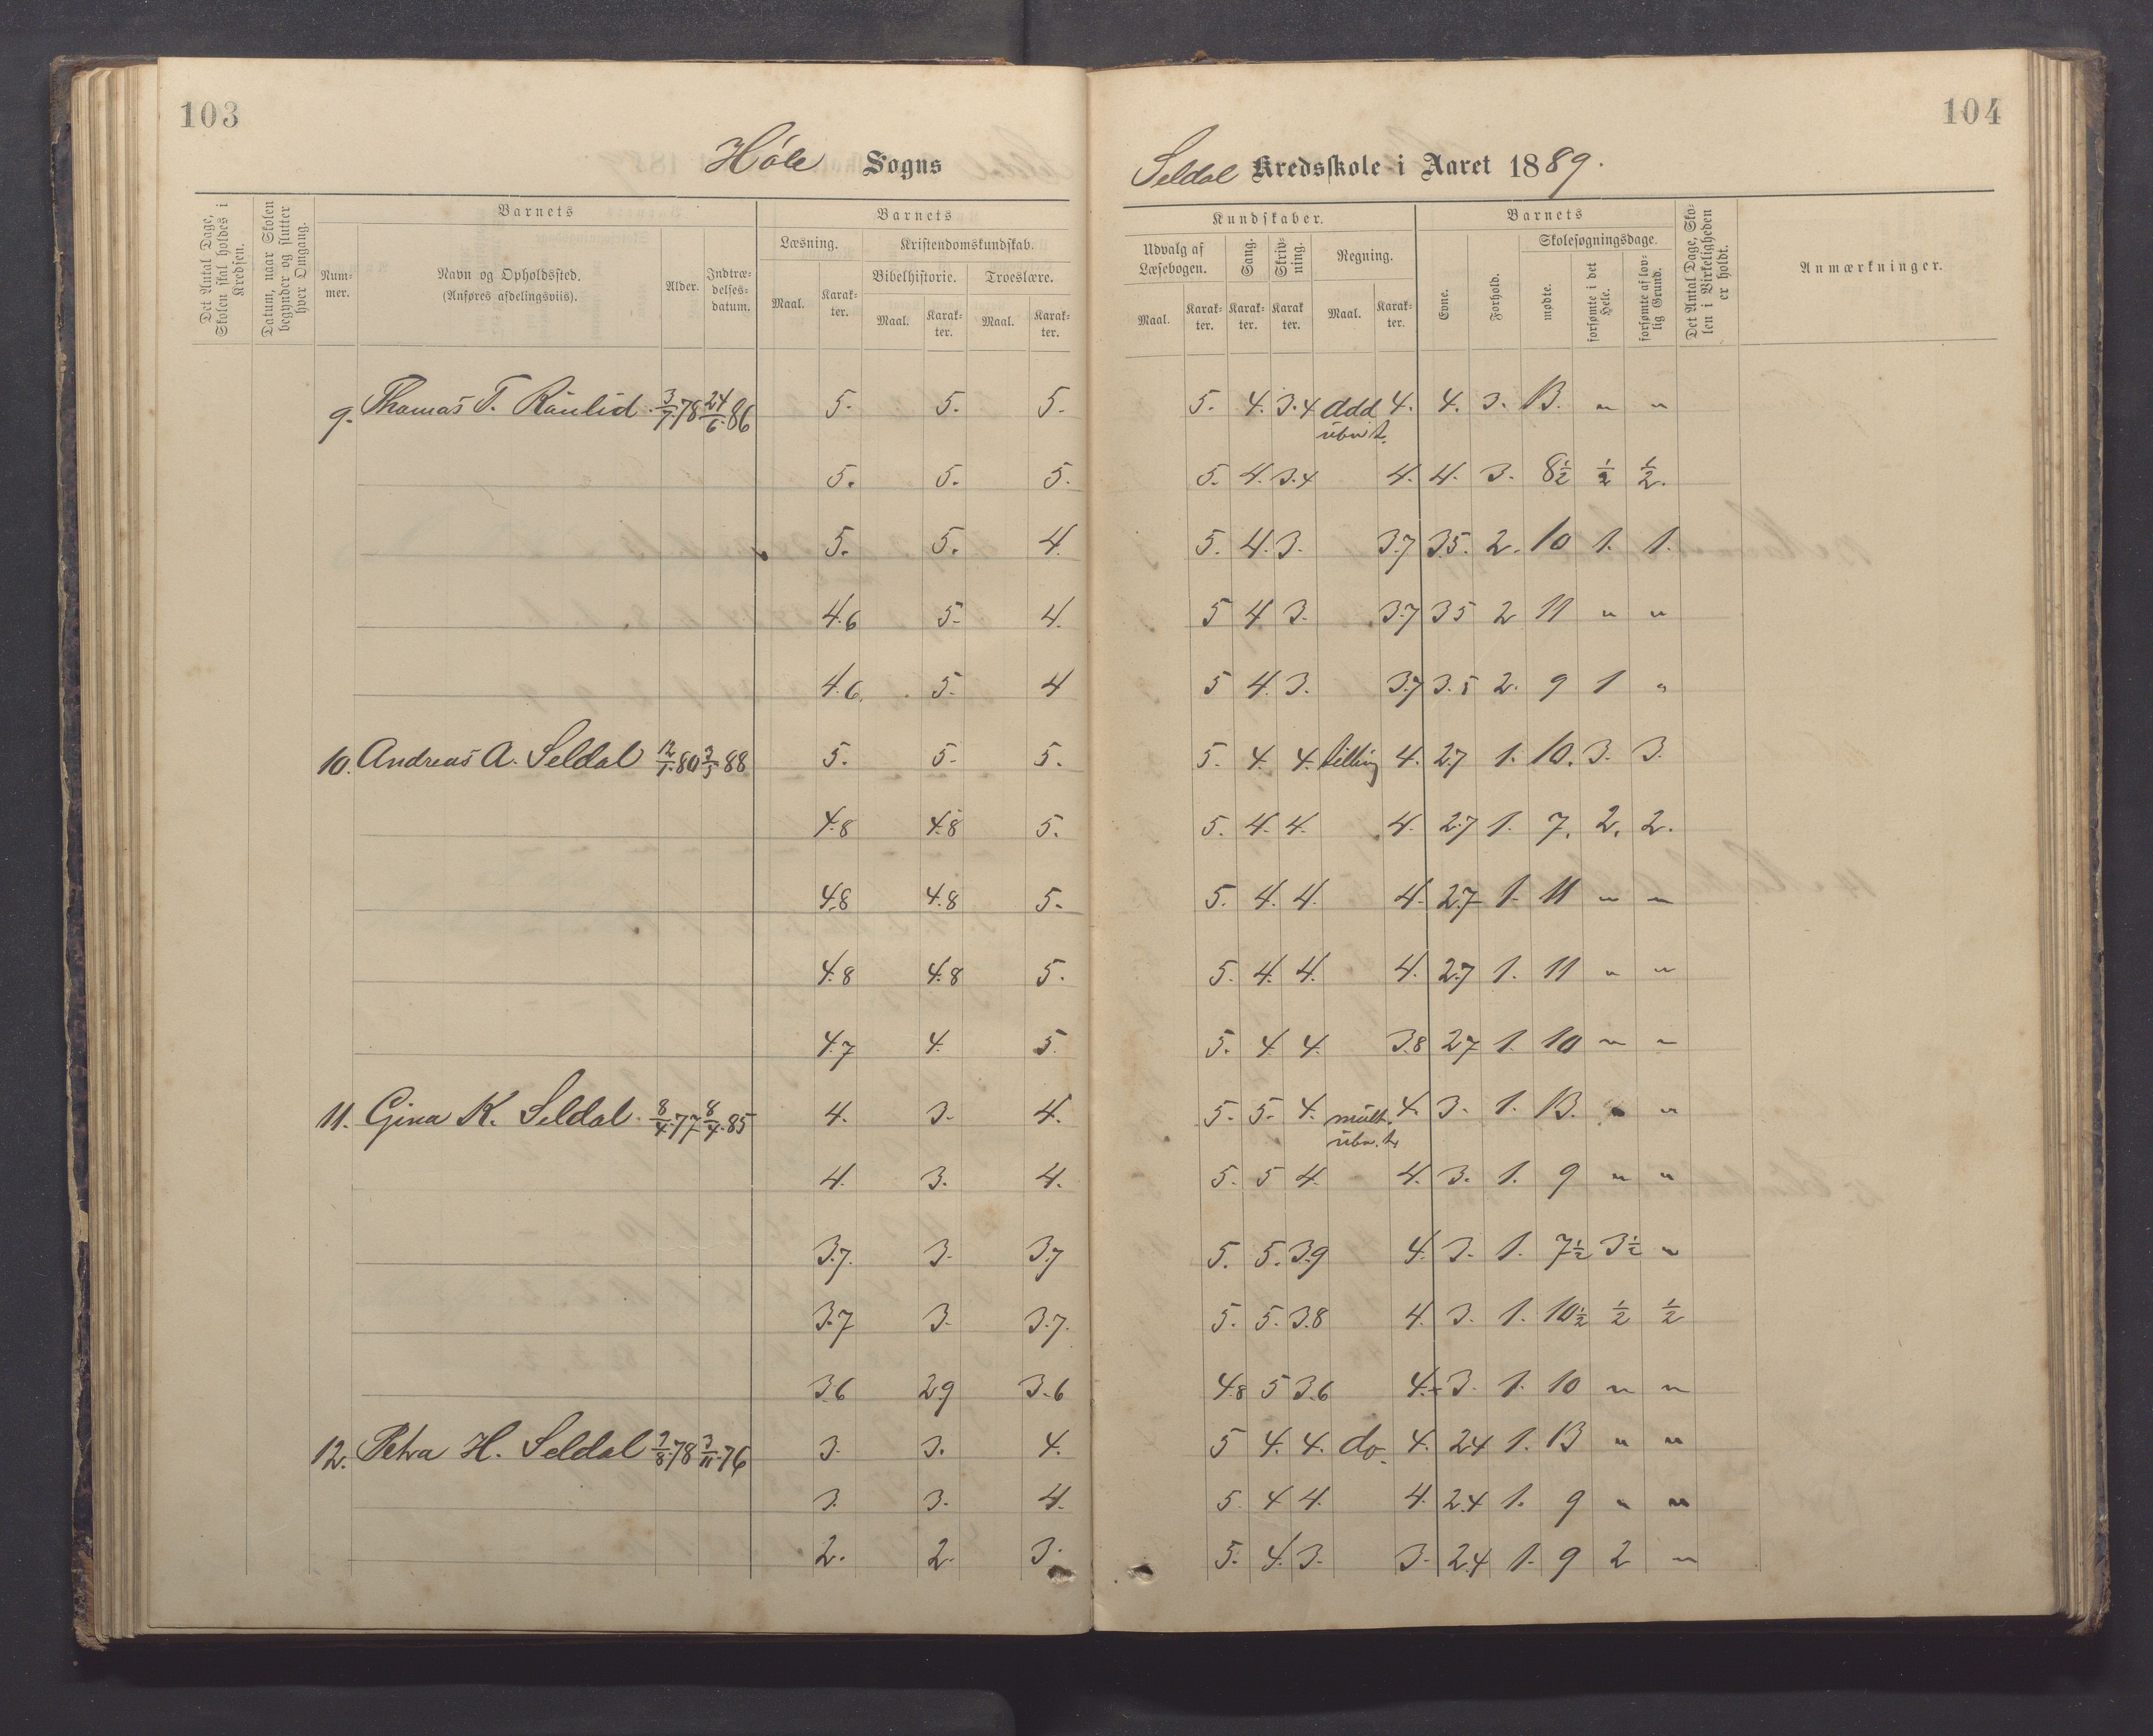 103
104
Höle Sogns
Seldal Kredsskole i Aaret 1889.
Det Antal Dage, Skolen skal holdes i Kredsen.
Datum, naar Skolen begynder og slutter hver Omgang.
Barnets
Num-mer.
Navn og Opholdssted. (Anføres afdelingsviis).
Alder.
Indtræ-delses-datum.
Barnets
Læsning.
Kristendomskundskab.
Bibelhistorie. Troeslære.
Maal. Karak-ter. Maal. Karak-ter. Maal. Karak-ter.
Kundskaber.
Udvalg af Læsebogen.
Sang.
Skriv-ning.
Regning.
Maal. Karak-ter. Karak-ter. Karak ter. Maal. Karak-ter.
Barnets
Evne.
Forhold.
Skolesøgningsdage.
mødte.
forsømte i det Hele.
forsømte af lov-lig Grund.
Det Antal Dage, Sko-len i Virkeligheden er holdt.
Anmærkninger.
9. Thomas T. 3/7.78 24/6.86 5. 5. 5. 5. 4. 3.4 add 4. 4. 3. 13. " "
ubn t.
5. 5. 5. 5. 4. 3.4 4. 4. 3. 8½ ½ ½.
5. 5. 4. 5. 4. 3. 3.7 3.5. 2. 10 1. 1.
4.6 5. 4. 5 4 3. 3.7 35 2 11 " "
4.6. 5. 4 5 4. 3. 3.7 3.5 2. 9 1 "
10. Andreas A. Seldal 12/1.80 3/5 88 5. 5. 5. 5. 4. 4. 4. 2.7 1. 10. 3. 3.
4.8 4.8 5. 5. 4. 4. 4. 2.7 1. 7. 2. 2.
4.8 4.8 5. 5. 4. 4. 4. 2.7 1. 11 " "
4.8 4.8 5. 5. 4. 4. 4. 2.7 1. 11 " "
4.7 4. 5. 5. 4. 4. 3.8 2.7 1. 10 " "
11. Gina K. Seldal. 8/4.77 8/4.85 4. 3. 4. 5. 5. 4. mult. 4. 3. 1. 13. " "
ubn. t.
4. 3. 4. 5. 5 4. 4. 3. 1. 9 " "
3.7. 3. 3.7 5. 5. 3.9 4. 3. 1. 7½ 3½ "
3.7 3. 3.7. 5. 5. 3.8 4. 3. 1. 10½ ½ ½
3.6 2.9 3.6 4.8 5 3.6 4. 3. 1. 10 " "
12. Petra H. Seldal 3/8.78 3/11.76 3. 3. 4. 5 4. 4. do. 4. 2.4 1. 13 " "
3. 3. 4. 5. 4 4. 4. 2.4 1. 9 " "
2. 2. 3. 5. 4. 3. 3. 2.4 1. 9 2 "